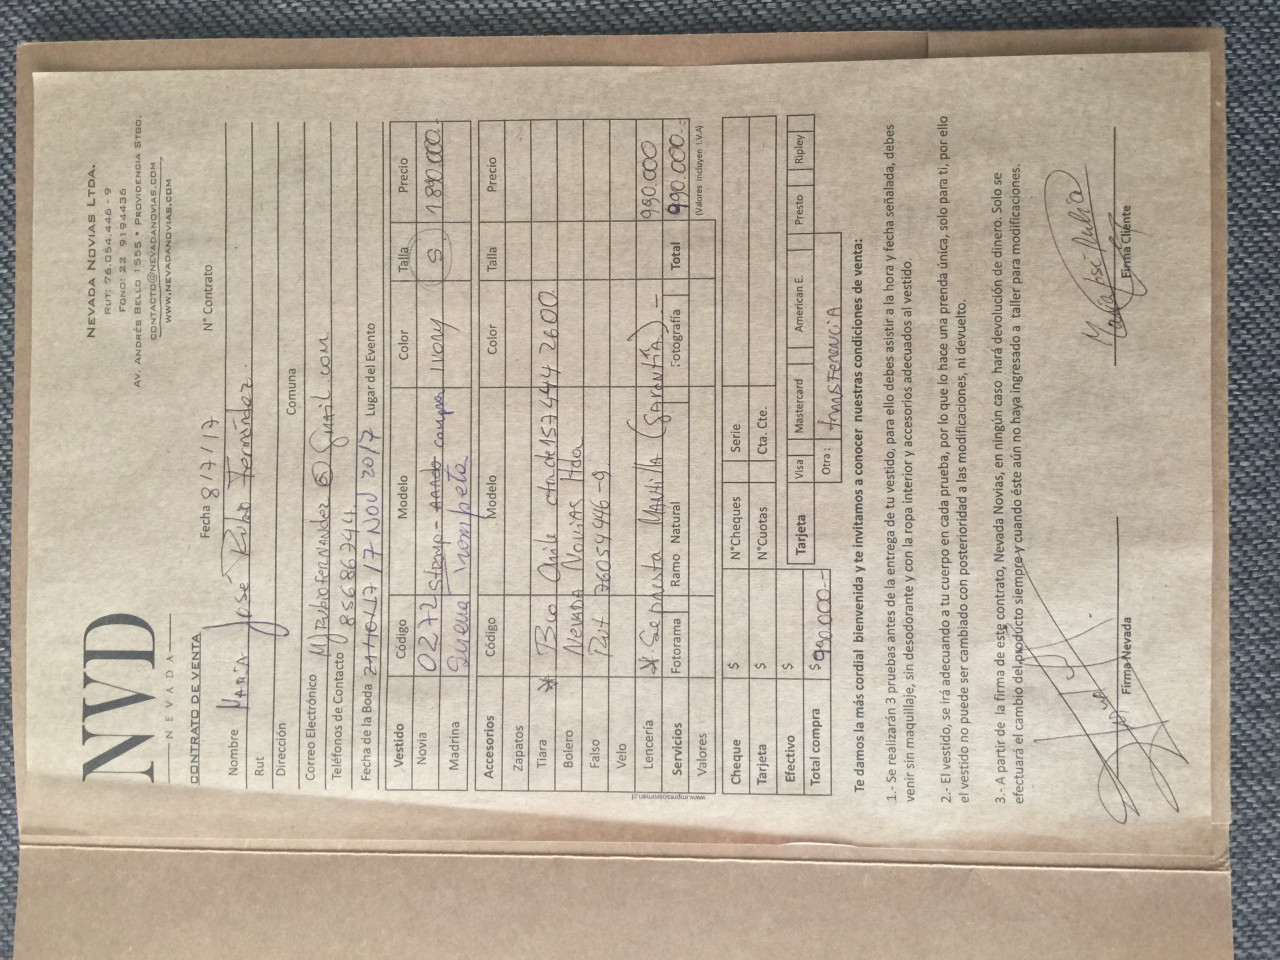 NVD
NEVADA
NEVADA NOVIAS LTDA.
RUT: 76.054.446 - 9
FONO: 22 9194436
AV. ANDRÉS BELLO 1555 • PROVIDENCIA STGO.
CONTACTO@NEVADANOVIAS.COM
WWW.NEVADANOVIAS.COM
CONTRATO DE VENTA
Fecha 8/7/17 N° Contrato
Nombre María José Rubio Fernández
Rut
Dirección Comuna
Correo Electrónico MJRubioFernandez @ Gmail.com
Teléfonos de Contacto 85686744
Fecha de la Boda 17 Nov 2017 Lugar del Evento
Vestido Código Modelo Color Talla Precio
Novia 0272 compra IVORY S. 1.890.000.-
Madrina Sirena Trompeta
Accesorios Código Modelo Color Talla Precio
Zapatos
Tiara * Bco Chile cta cte 157444 2600
Bolero Nevada Novias ltda
Falso Rut 76054446-9
Velo
Lencería * Se presta Mantilla (garantía) — 990.000
Servicios Fotorama Ramo Natural Fotografía Total 990.000.-
Valores (Valores incluyen I.V.A)
www.impresosroman.cl
Cheque $ N°Cheques Serie
Tarjeta $ N°Cuotas Cta. Cte.
Efectivo $ Tarjeta Visa Mastercard American E. Presto Ripley
Total compra $ 990.000.- Otra: transferencia
Te damos la más cordial bienvenida y te invitamos a conocer nuestras condiciones de venta:
1.- Se realizarán 3 pruebas antes de la entrega de tu vestido, para ello debes asistir a la hora y fecha señalada, debes
venir sin maquillaje, sin desodorante y con la ropa interior y accesorios adecuados al vestido.
2.- El vestido, se irá adecuando a tu cuerpo en cada prueba, por lo que lo hace una prenda única, solo para ti, por ello
el vestido no puede ser cambiado con posterioridad a las modificaciones, ni devuelto.
3.- A partir de la firma de este contrato, Nevada Novias, en ningún caso hará devolución de dinero. Solo se
efectuará el cambio del producto siempre y cuando éste aún no haya ingresado a taller para modificaciones.
María José Rubio
Firma Nevada Firma Cliente